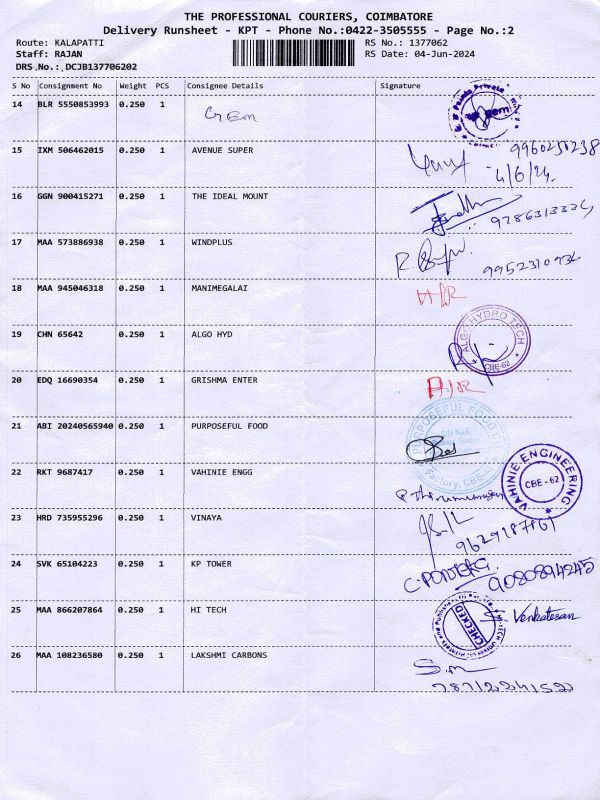 THE PROFESSIONAL COURIERS, COIMBATORE
Delivery Runsheet - KPT - Phone No.:0422-3505555 - Page No.:2
Route: KALAPATTI RS No.: 1377062
Staff: RAJAN RS Date: 04-Jun-2024
DRS No.: DCJB137706202
S No Consignment No Weight PCS Consignee Details Signature
14 BLR 5550853993 0.250 1 GEM
15 IXM 506462015 0.250 1 AVENUE SUPER 9960258238
4/6/24.
16 GGN 900415271 0.250 1 THE IDEAL MOUNT 9786313334
17 MAA 573886938 0.250 1 WINDPLUS 9952310936
18 MAA 945046318 0.250 1 MANIMEGALAI
19 CHN 65642 0.250 1 ALGO HYD ALGO HYDRO TECH CBE-62
20 EDQ 16690354 0.250 1 GRISHMA ENTER
21 ABI 20240565940 0.250 1 PURPOSEFUL FOOD PURPOSEFUL FOOD
22 RKT 9687417 0.250 1 VAHINIE ENGG VAHINIE ENGINEERING CBE - 62
23 HRD 735955296 0.250 1 VINAYA 9629187861
24 SVK 65104223 0.250 1 KP TOWER 9080894245
25 MAA 866207864 0.250 1 HI TECH CHECKED S. Venkatesan
26 MAA 108236580 0.250 1 LAKSHMI CARBONS S.m